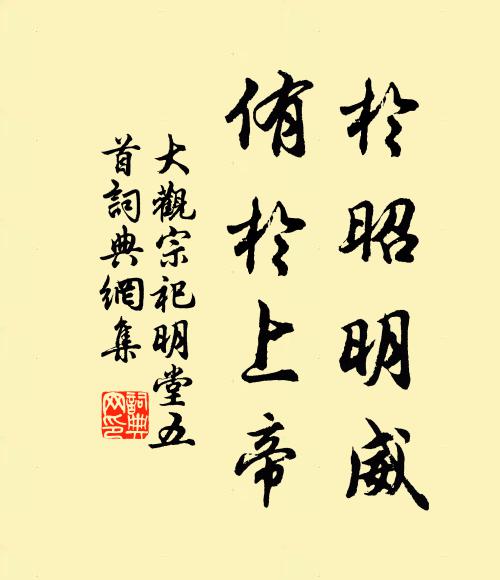 於昭明威
侑於上帝
大觀宗祀明堂五
首詞典網集
詞典
网印